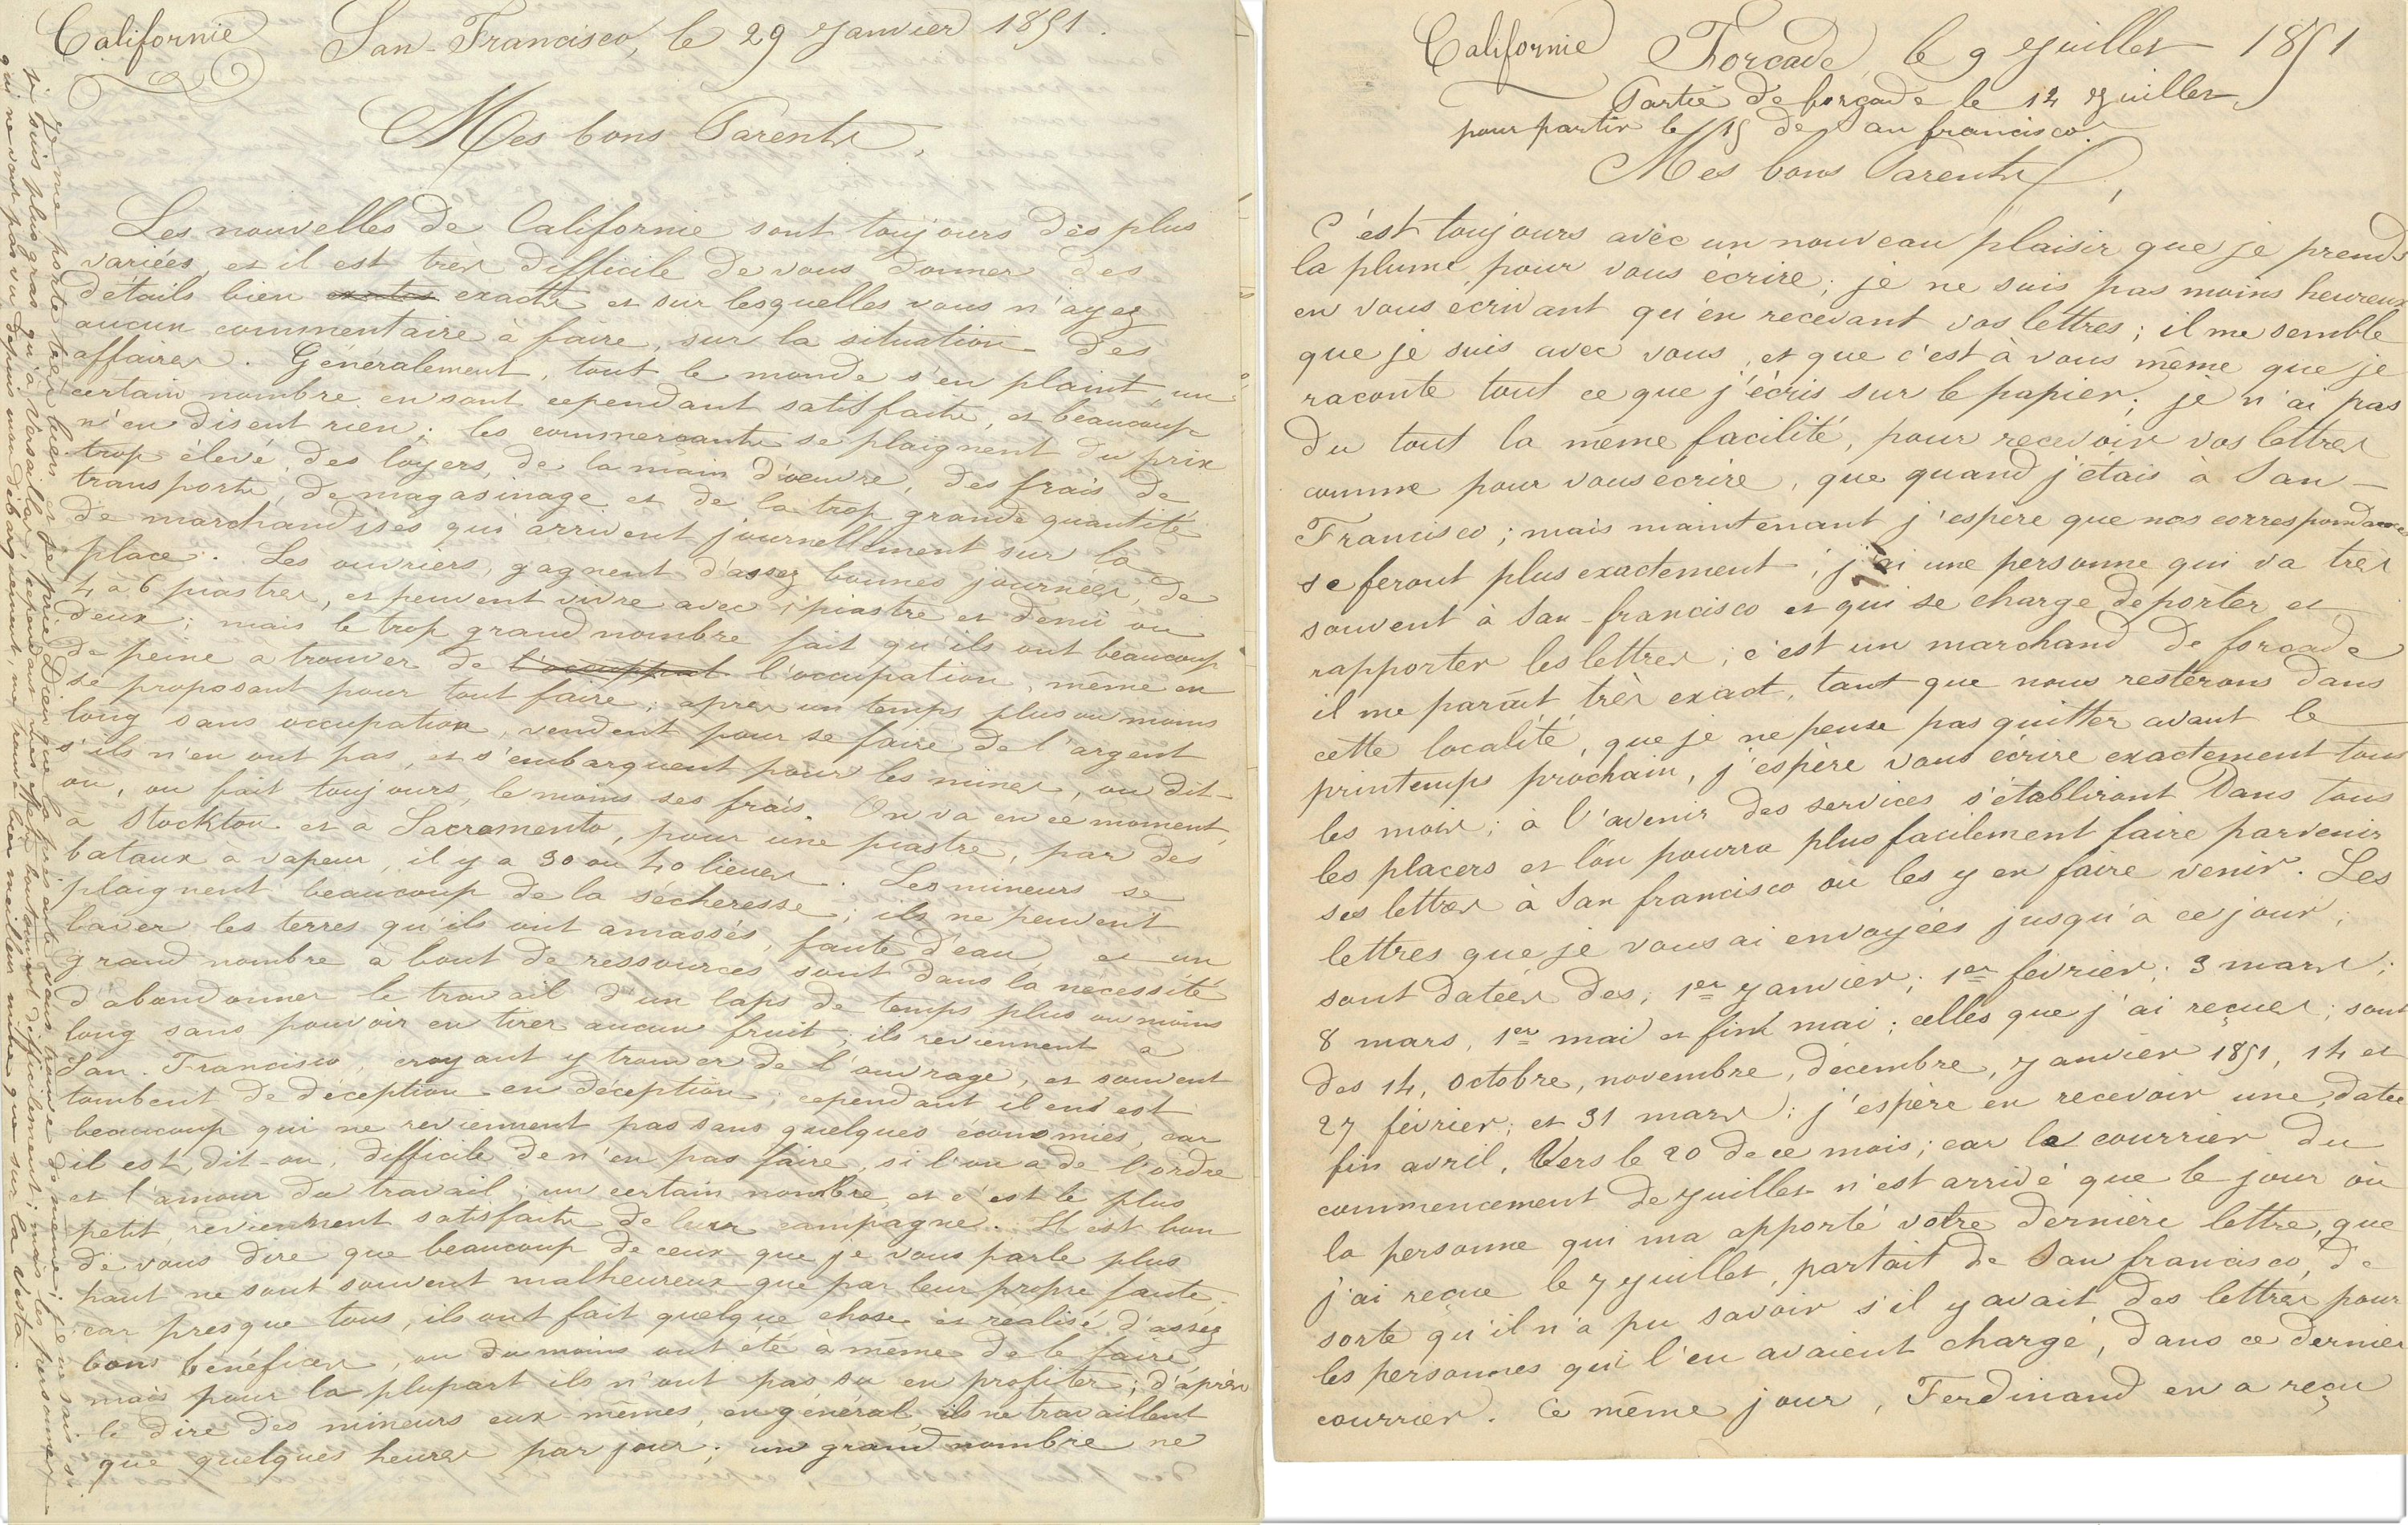 Californie San-Francisco, le 29 Janvier 1851.
Mes bons Parents,
Les nouvelles de Californie sont toujours des plus
variées, et il est très difficile de vous donner des
détails bien exactes exacts et sur lesquelles vous n'ayez
aucun commentaire à faire, sur la situation des
affaires. Généralement, tout le monde s'en plaint, un
certain nombre en sont cependant satisfaits, et beaucoup
n'en disent rien; les commerçants se plaignent du prix
trop élevé, des loyers, de la main d'œuvre, des frais de
transports, de magasinage et de la trop grande quantité
de marchandises qui arrivent journellement sur la
place. Les ouvriers, gagnent d'assez bonnes journées, de
4 à 6 piastres, et peuvent vivre avec 1 piastre et demi ou
deux; mais le trop grand nombre fait qu'ils ont beaucoup
de peine a trouver de l'occuppat l'occupation, même en
se proposant pour tout faire; après un temps plus ou moins
long sans occupation, vendent pour se faire de l'argent
s'ils n'en ont pas, et s'embarquent pour les mines, ou dit-
on, on fait toujours, le moins ses frais. On va en ce moment,
a Stockton et a Sacramento, pour une piastre, par des
bataux à vapeur, il y a 30 ou 40 lieues. Les mineurs se
plaignent beaucoup de la sécheresse; ils ne peuvent
laver les terres qu'ils ont amassés, faute d'eau, et un
grand nombre à bout de ressources sont dans la nécessité
d'abandonner le travail d'un laps de temps plus ou moins
long sans pouvoir en tirer aucun fruit; ils reviennent a
San-Francisco, croyant y trouver de l'ouvrage, et souvent
tombent de déception en déception; cependant il en est
beaucoup qui ne reviennent pas sans quelques économies, car
il est, dit-on, difficile de n'en pas faire, si l'on a de l'ordre
et l'amour du travail; un certain nombre et c'est le plus
petit, reviennent satisfaits de leur campagne. Il est bon
de vous dire que beaucoup de ceux que je vous parle plus
haut ne sont souvent malheureux que par leur propre faute,
car presque tous, ils ont fait quelque chose et réalisé d'assez
bons bénéfices, ou du moins ont été à même de le faire,
mais pour la plupart ils n'ont pas su en profiter; d'après
le dire des mineurs eux-mêmes, en général, ils ne travaillent
que quelques heures par jour; un grand nombre ne
Je me porte très bien et je prie Dieu que la présente vous trouve de même; je ne sais si
je suis plus gras qu'à Versailles, cependant mes boutonnent difficilement; mais les personnes
qui ne m'ont pas vu depuis mon débarquement, me trouve bien meilleur mine que sur la Vesta.
Californie Forcade, le 9 Juillet 1851
Partie de forcade le 12 Juillet
pour partir le 15 de San francisco.
Mes bons Parents,
C'est toujours avec un nouveau plaisir que je prends
la plume pour vous écrire; je ne suis pas moins heureux
en vous écrivant qu'en recevant vos lettres; il me semble
que je suis avec vous, et que c'est à vous même que je
raconte tout ce que j'écris sur le papier; je n'ai pas
du tout la même facilité, pour recevoir vos lettres
comme pour vous écrire, que quand j'étais à San-
Francisco; mais maintenant j'espère que nos correspondances
se feront plus exactement; j'ai une personne qui va très
souvent à San-francisco et qui se charge de porter et
rapporter les lettres; c'est un marchand de forcade
il me paraît très exact, tant que nous resterons dans
cette localité, que je ne pense pas quitter avant le
printemps prochain, j'espère vous écrire exactement tous
les mois; à l'avenir des services s'établiront dans tous
les placers et l'on pourra plus facilement faire parvenir
ses lettres à San francisco ou les y en faire venir. Les
lettres que je vous ai envoyées jusqu'à ce jour,
sont datées des, 1er Janvier; 1er février; 3 mars;
8 mars, 1er mai et fin mai; celles que j'ai reçues; sont
des 14, Octobre, novembre, décembre, Janvier 1851, 14 et
27 février, et 31 mars; j'espère en recevoir une, datée
fin avril, Vers le 20 de ce mois; car le courrier du
commencement de Juillet n'est arrivé que le jour où
la personne qui ma apporté votre dernière lettre, que
j'ai reçue le 7 Juillet, partait de San francisco, de
sorte qu'il n'a pu savoir s'il y avait des lettres pour
les personnes qui l'en avaient chargé, dans ce dernier
courrier. Ce même jour, Ferdinand en a reçu